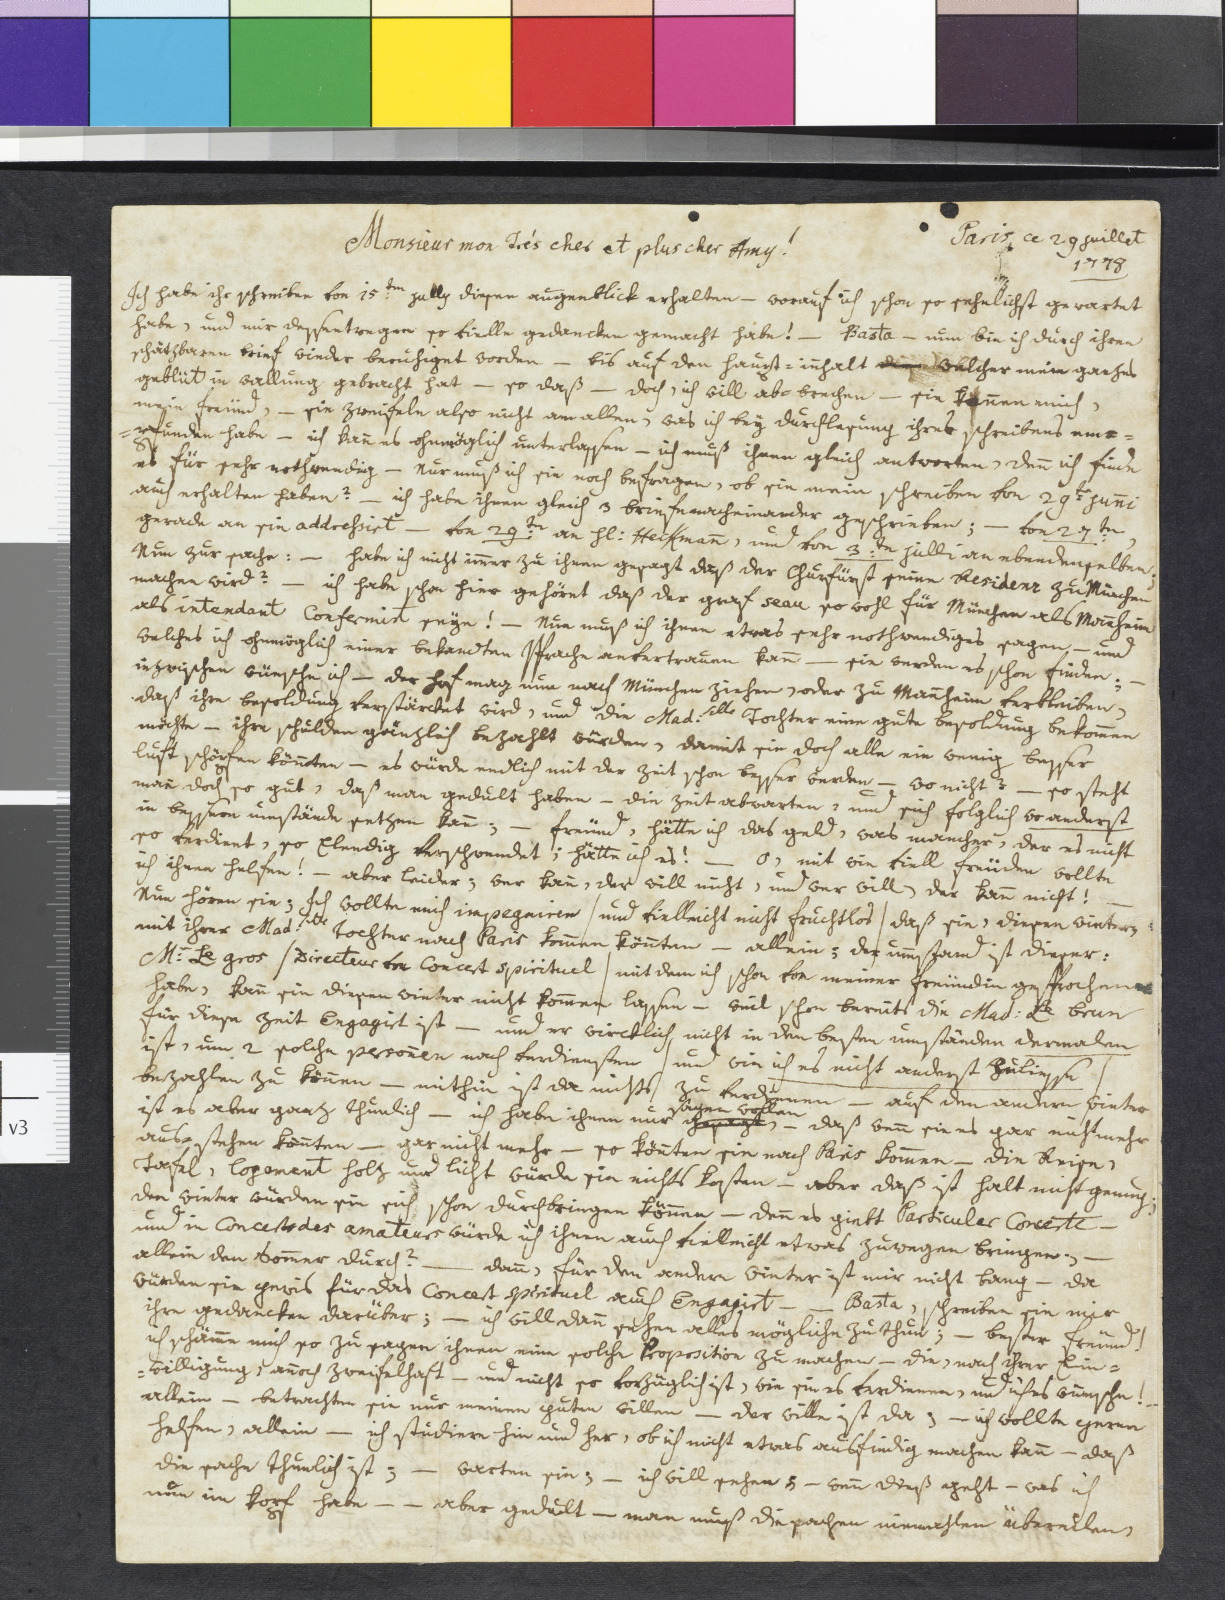 Monsieur mon Trés cher et plus cher Amy!
Paris, ce 29 juillet
1778
Ich habe ihr schreiben von 15:ten july diesen augenblick erhalten – worauf ich schon so sehnlichst gewartet
habe, und mir dessentwegen so vielle gedancken gemacht habe! – Basta – nun bin ich durch ihren
schätzbaren brief wieder beruhiget worden – bis auf den haupt=innhalt welcher mein ganzes
geblüt in wallung gebracht hat – so daß – doch, ich will abbrechen – sie kennen mich,
mein freünd, – sie zweifeln also nicht an allen, was ich bey durchlesung ihres schreibens em=
=pfunden habe – ich kan es ohnmöglich unterlassen – ich muß ihnen gleich antworten, denn ich finde
es für sehr nothwendig – Nur muß ich sie noch befragen, ob sie mein schreiben von 29:ten juni
auch erhalten haben? – ich habe ihnen gleich 3 briefe nacheinander geschrieben; – von 27:ten,
gerade an sie addressirt – von 29:ten an H: Heckmann, und von 3:ten julli an ebendenselben;
Nun zur sache: – habe ich nicht immer zu ihnen gesagt daß der Churfürst seine Residenz zu München
machen wird? – ich habe schon hier gehöret daß der graf seau so wohl für München als Manheim
als intendant Confermirt seye! – Nun muß ich ihnen etwas sehr nothwendiges sagen, – und
welches ich ohnmöglich einer bekandten Sprache anvertrauen kann – sie werden es schon finden; –
inzwischen wünsche ich – der hof mag nun nach München ziehen, oder zu Manheim verbleiben,
daß ihre besoldung verstärcket wird, und die Mad:selle Tochter eine gute besoldung bekommen
möchte – ihre schulden gänzlich bezahlt würden, damit sie doch alle ein wenig besser
luft schöpfen könnten – es würde endlich mit der zeit schon besser werden – wo nicht? – so steht
man doch so gut, daß man gedult haben – die zeit abwarten, und sich folglich wo anderst
in bessere umstände setzen kann; – freünd, hätte ich das geld, was mancher, der es nicht
so verdient, so Elendig verschwendet; hätte ich es! – O, mit wie viell freüden wollte
ich ihnen helfen! – aber leider; wer kann, der will nicht, und wer will, der kann nicht! –
Nun hören sie; Ich wollte mich impegniren / und vielleicht nicht fruchtlos / daß sie, diesen winter
mit ihrer Mad:selle Tochter nach Paris kommen könnten – allein; der umstand ist dieser:
M:r Le gros / Directeur von Concert spirituel / mit dem ich schon von meiner freündin gesprochen
habe, kann sie diesen winter nicht kommen lassen – weil schon bereits die Mad: Le brun
für diese zeit Engagirt ist – und er wircklich nicht in den besten umständen dermalen
ist, um 2 solche personnen nach verdiensten / und wie ich es nicht anderst zuliesse /
bezahlen zu können – mithin ist da nichts zu verdienen – auf den andern winter
ist es aber ganz thunlich – ich habe ihnen nur sagen wollen, – daß wenn sie es gar nicht mehr
aus=stehen könnten – gar nicht mehr – so könnten sie nach Paris kommen – die Reise,
Tafel, logement holtz und licht würde sie nichts kosten – aber daß ist halt nicht genug;
den winter würden sie sich schon durchbringen können – denn es giebt Particular Concerte –
und in Concert des amateurs würde ich ihnen auch vielleicht etwas zuwegen bringen; –
allein den Sommer durch? – dann, für den andern winter ist mir nicht bang – da
würden sie gewis für das Concert spirituel auch Engagirt – – Basta, schreiben sie mir
ihre gedancken darüber; – ich will dann sehen alles mögliche zu thun; – bester freünd!
ich schämme mich so zu sagen ihnen eine solche Proposition zu machen – die, nach ihrer Ein=
=willigung, annoch zweifelhaft – und nicht so vorzüglich ist, wie sie es verdienen, und ich es wünsche! –
allein – betrachten sie nur meinen guten willen – der wille ist da; – ich wollte gerne
helfen, allein – ich studiere hin und her, ob ich nicht etwas ausfindig machen kann – daß
die sache thunlich ist; – warten sie; – ich will sehen; – wenn dieß geht – was ich
nun im kopf habe – – aber gedult – man muß die sachen niemahlen übereilen,